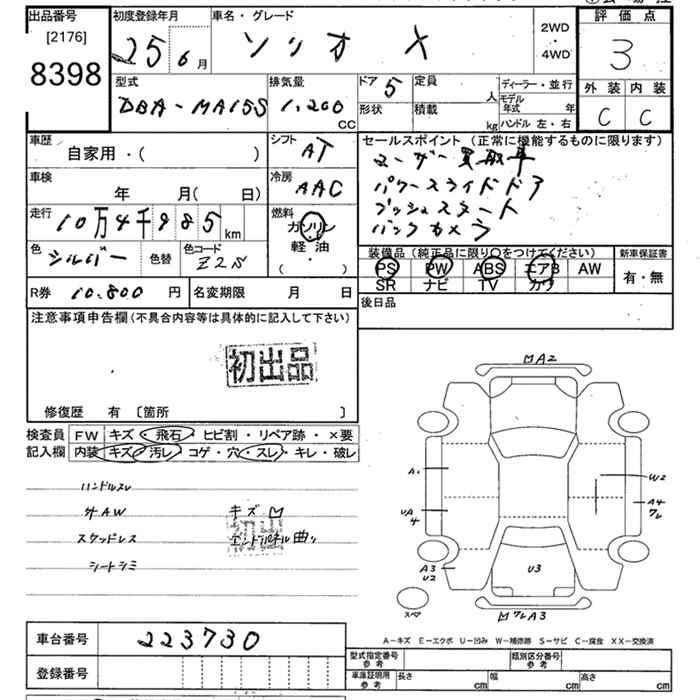 出品番号
[2176]
8398
初度登録年月
25 6月
車名・グレード
ソリオ X
2WD
・
4WD
評価点
3
外装 内装
C C
型式
DBA-MA15S
排気量
1,200
CC
ドア 5
定員
人
形状
積載
kg
ディーラー・並行
モデル年式
年
ハンドル 左・右
車歴
自家用・( )
シフト
AT
車検
年 月( 日)
冷房
AAC
走行
10万4千985km
燃料
ガソリン
・
軽油
( ・ )
色
シルバー
色替
色コード
Z2S
セールスポイント(正常に機能するものに限ります)
ユーザー買取車
パワースライドドア
プッシュスタート
バックカメラ
装備品(純正品に限り〇をつけてください)
PS PW ABS エアB AW
SR ナビ TV カワ
新車保証書
有・無
R券
10,800 円
名変期限
月 日
後日品
注意事項申告欄(不具合内容等は具体的に記入して下さい)
初出品
修復歴 有 〔箇所 〕
検査員
記入欄
FW キズ・飛石・ヒビ割・リペア跡・×要
内装 キズ・汚レ・コゲ・穴・スレ・キレ・破レ
ハンドルスレ
外AW
スタッドレス
シートシミ
キズ凹
初出
エンドパネル曲り
凹A2
A1
W2
A4
ワレ
A3
U2
U3
スペア
凹ワレA3
車台番号
223730
登録番号
A-キズ E-エクボ U-凹み W-補修跡 S-サビ C-腐食 XX-交換済
型式指定番号
参考
類別区分番号
参考
車庫証明用
参考
長さ
cm
幅
cm
高さ
cm